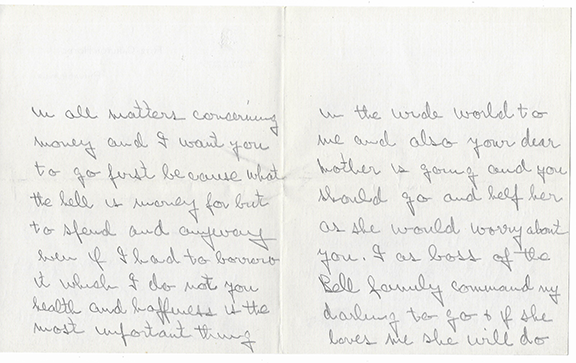 in all matters concerning
money and I want you
to go first because what
the hell is money for but
to spend and anyway
even if I had to borrow
it which I do not you
health and happiness is the
most important thing
in the wide world to
me and also your dear
mother is going and you
should go and help her
as she would worry about
you. I as boss of the
Bell family command my
darling to go & if she
loves me she will do